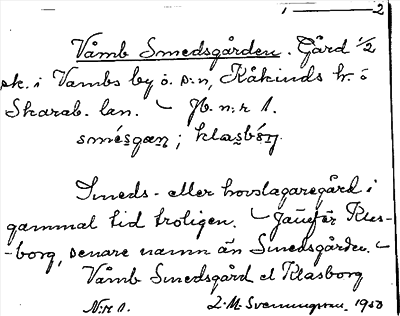 1 — 2
Våmb Smedsgården. Gård 1/2
sk. i Vambs by o. s:n, Kåkinds h. o
Skarab. län. – Jb. n:r 1.
smésgæn; klasbórj.
Smeds- eller hovslagaregård i
gammal tid troligen. – Jämför Klas-
-borg, senare namn än Smedsgården. –
Våmb Smedsgård el Klasborg
N:r 1. L. M. Svenungsson. 1950